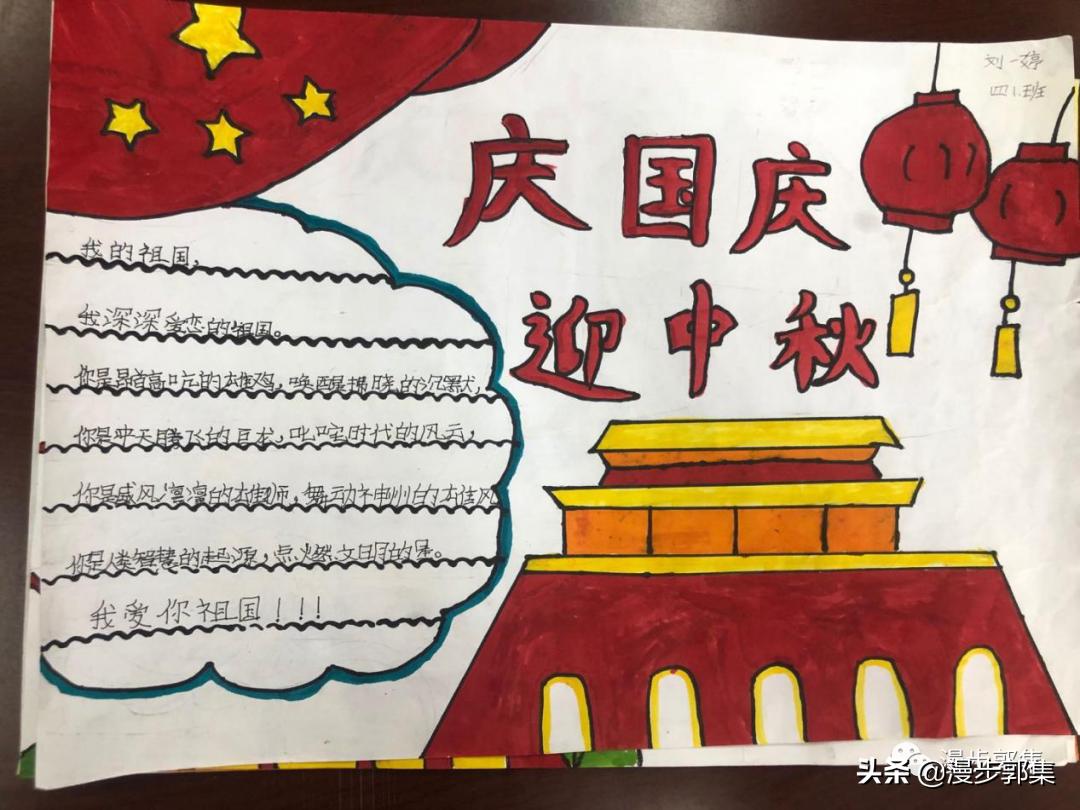 刘一婷
四1.班
庆国庆
迎中秋
我的祖国,
我深深爱恋的祖国。
你是昂首高吭的雄鸡,唤醒拂晓的沉默,
你是冲天腾飞的巨龙,叱咤时代的风云,
你是威风凛凛的雄师,舞动神州的雄风
你是人类智慧的起源,点燃文明的星。
我爱你祖国!!!
漫步郭集
头条 @漫步郭集